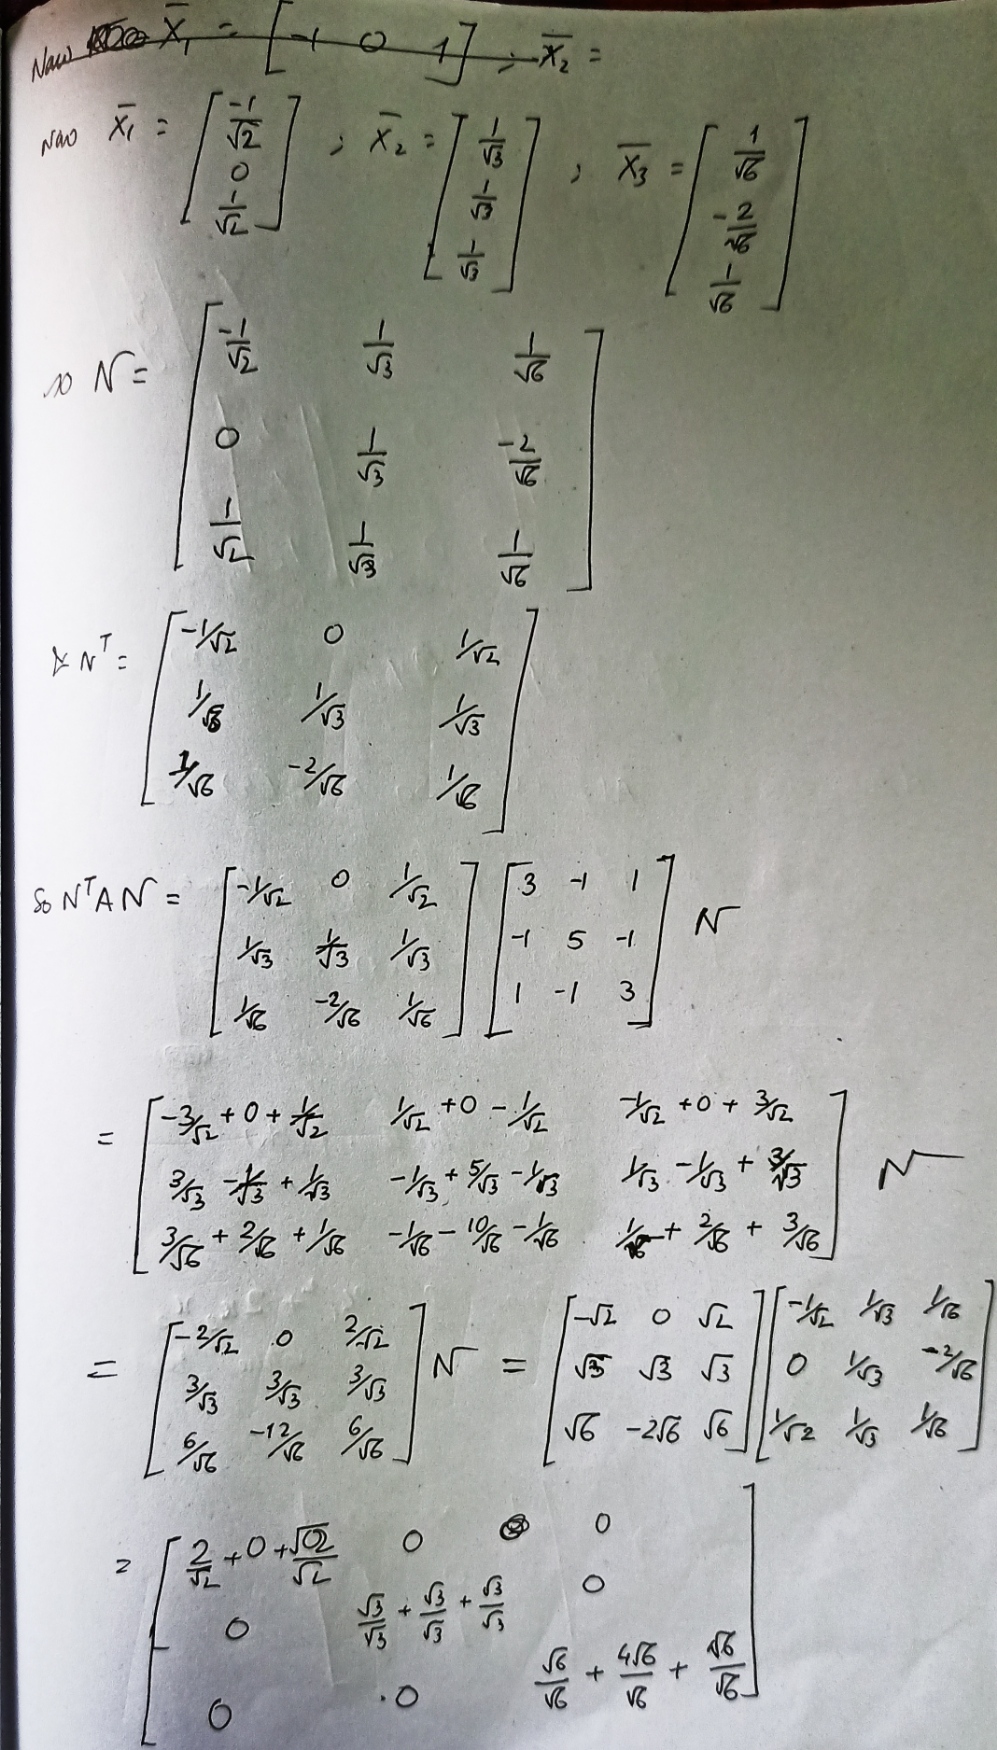 Now X̄₁ = [ -1 0 1 ] ; X̄₂ =
Now X̄₁ = [ -1/√2 ; 0 ; 1/√2 ] ; X̄₂ = [ 1/√3 ; 1/√3 ; 1/√3 ] ; X̄₃ = [ 1/√6 ; -2/√6 ; 1/√6 ]
so N = [ -1/√2 1/√3 1/√6
0 1/√3 -2/√6
1/√2 1/√3 1/√6 ]
& Nᵀ = [ -1/√2 0 1/√2
1/√3 1/√3 1/√3
1/√6 -2/√6 1/√6 ]
So NᵀAN = [ -1/√2 0 1/√2 ] [ 3 -1 1 ] N
[ 1/√3 1/√3 1/√3 ] [ -1 5 -1 ]
[ 1/√6 -2/√6 1/√6 ] [ 1 -1 3 ]
= [ -3/√2 + 0 + 1/√2 1/√2 + 0 - 1/√2 -1/√2 + 0 + 3/√2
3/√3 - 1/√3 + 1/√3 -1/√3 + 5/√3 - 1/√3 1/√3 - 1/√3 + 3/√3 ] N
3/√6 + 2/√6 + 1/√6 -1/√6 - 10/√6 - 1/√6 1/√6 + 2/√6 + 3/√6
= [ -2/√2 0 2/√2 ] N = [ -√2 0 √2 ] [ -1/√2 1/√3 1/√6 ]
[ 3/√3 3/√3 3/√3 ] [ √3 √3 √3 ] [ 0 1/√3 -2/√6 ]
[ 6/√6 -12/√6 6/√6 ] [ √6 -2√6 √6 ] [ 1/√2 1/√3 1/√6 ]
= [ 2/√2 + 0 + √2/√2 0 0
0 √3/√3 + √3/√3 + √3/√3 0
0 0 √6/√6 + 4√6/√6 + √6/√6 ]